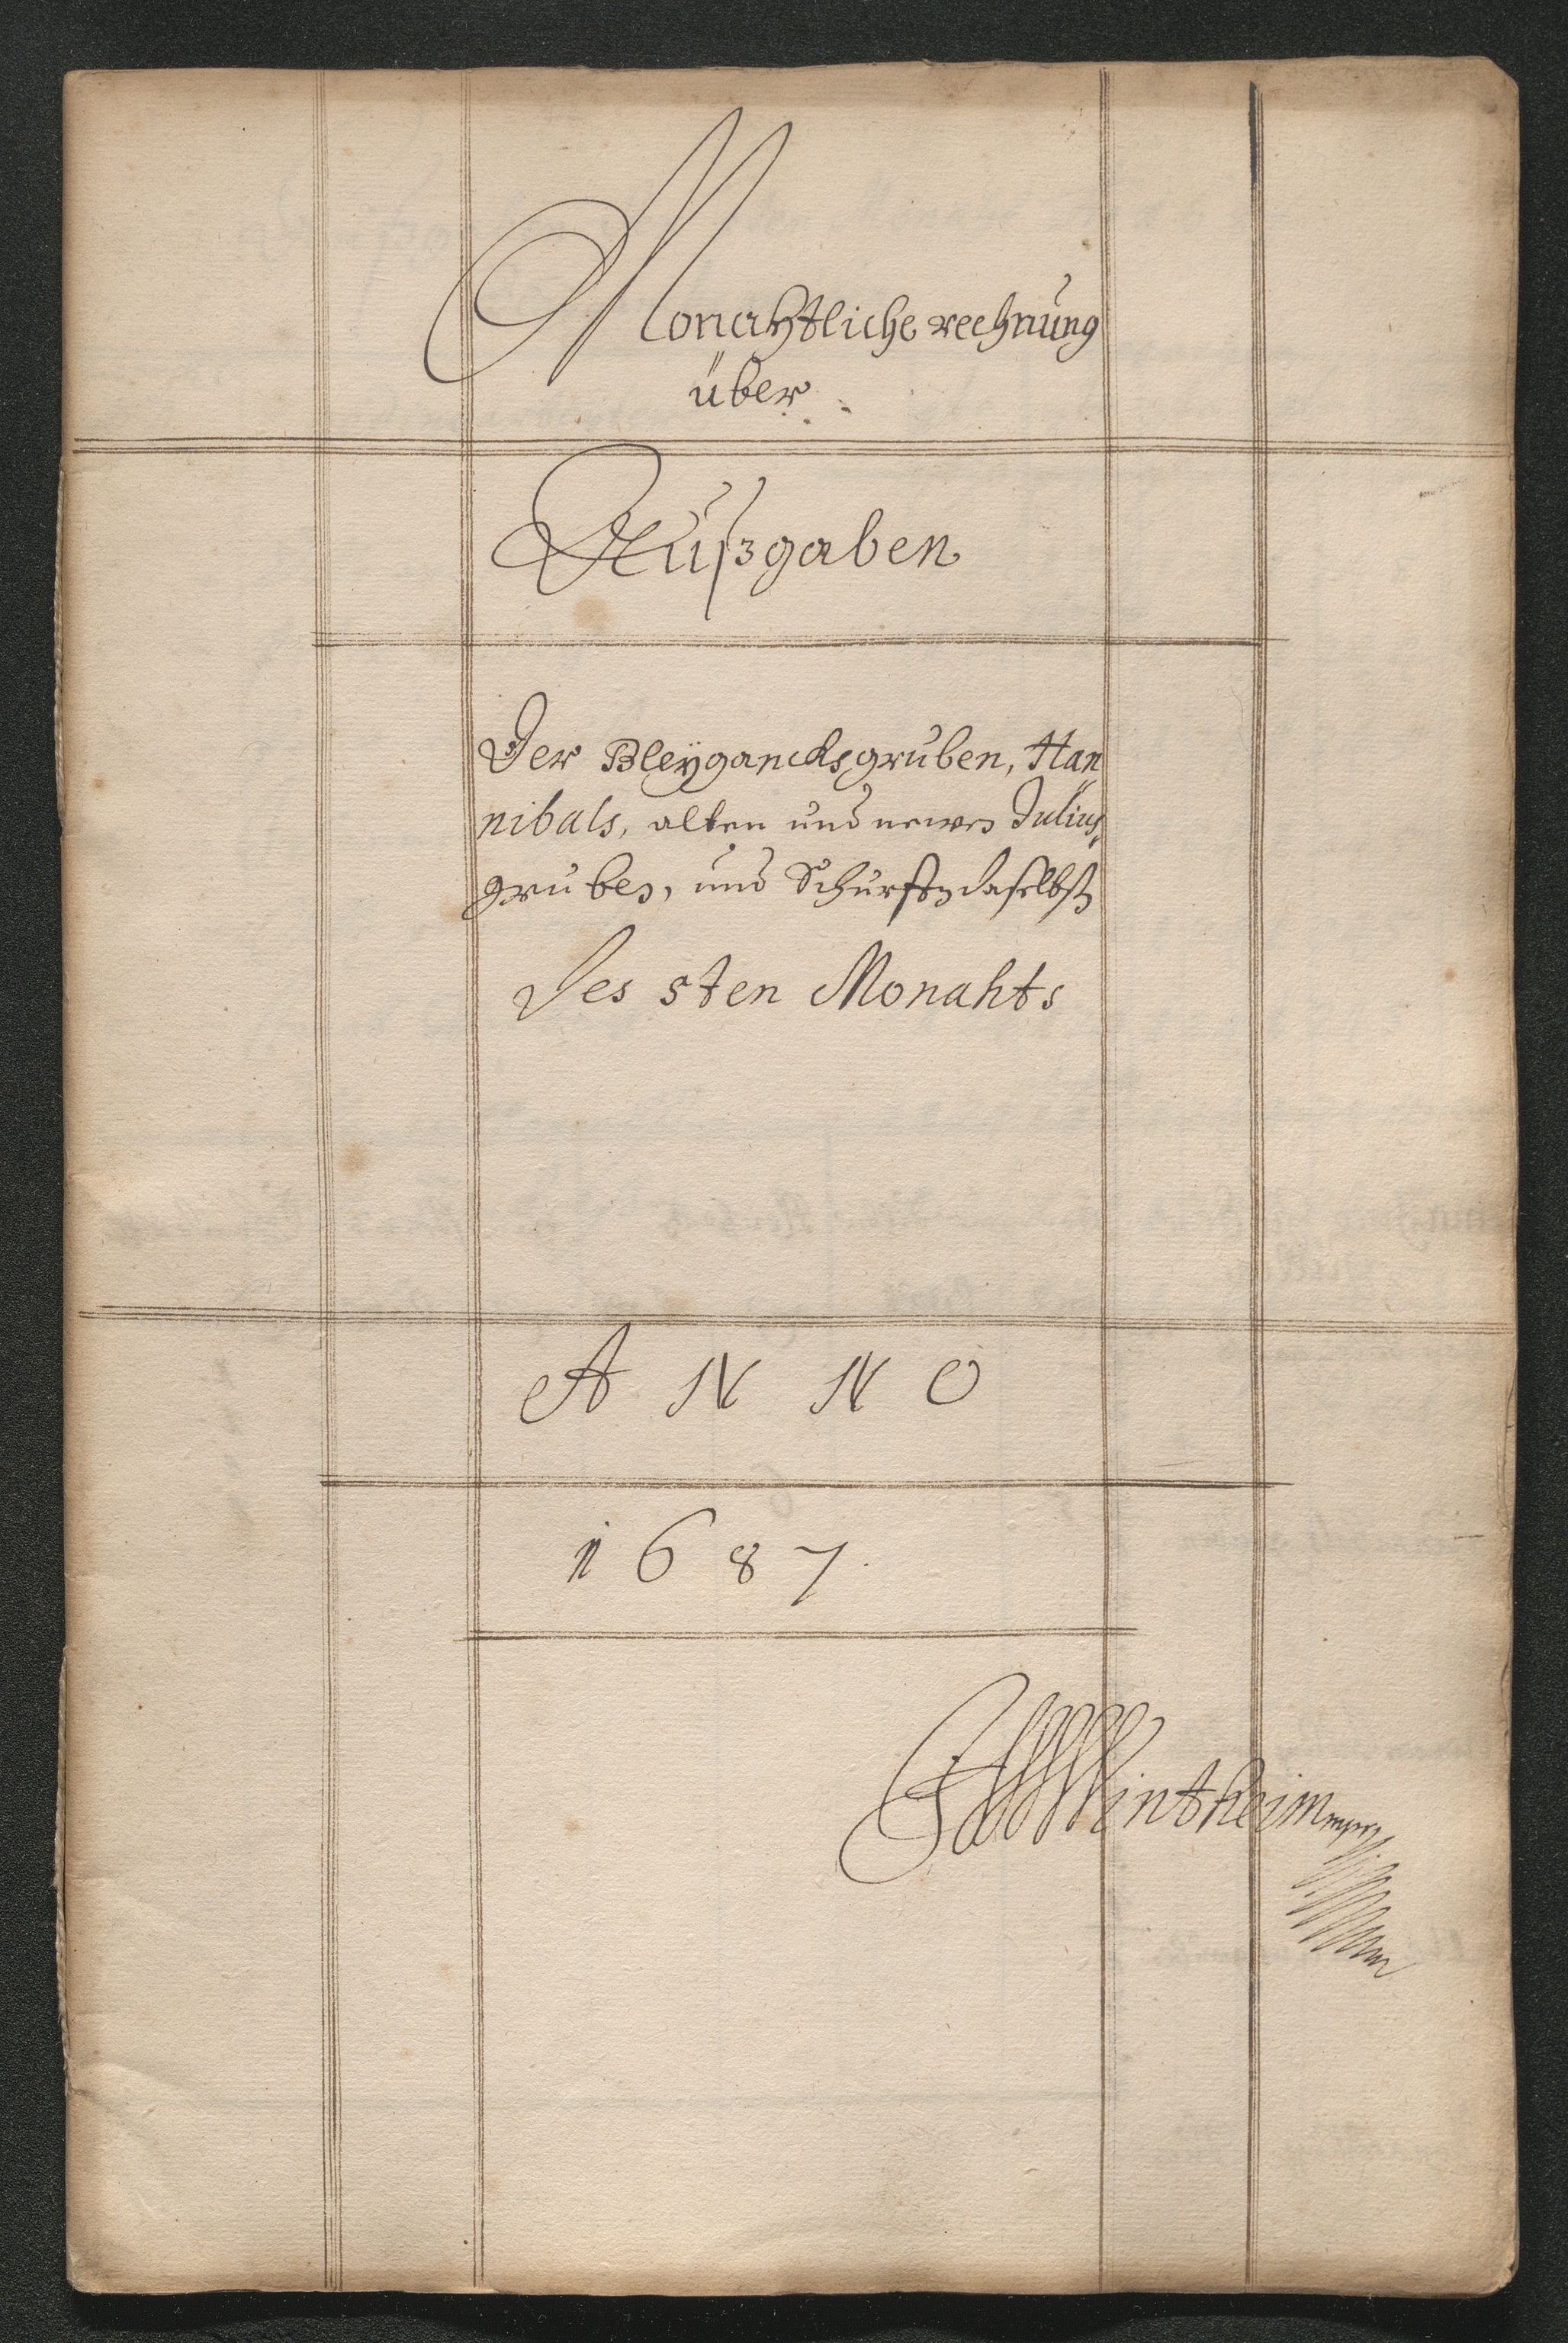 Monahtliche rechnung
über
Außgaben
Der Bleygancksgruben, Han
nibals, alten und newen Julius,
gruben, und Schurfftendaselbst
Des 5ten Monahts
ANNO
1687.
Wintheim mpria